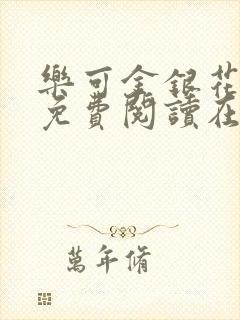 樂可金銀花
免費閱讀在
萬年脩